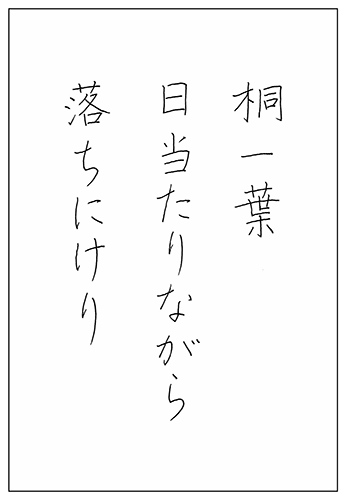 桐一葉
日当たりながら
落ちにけり